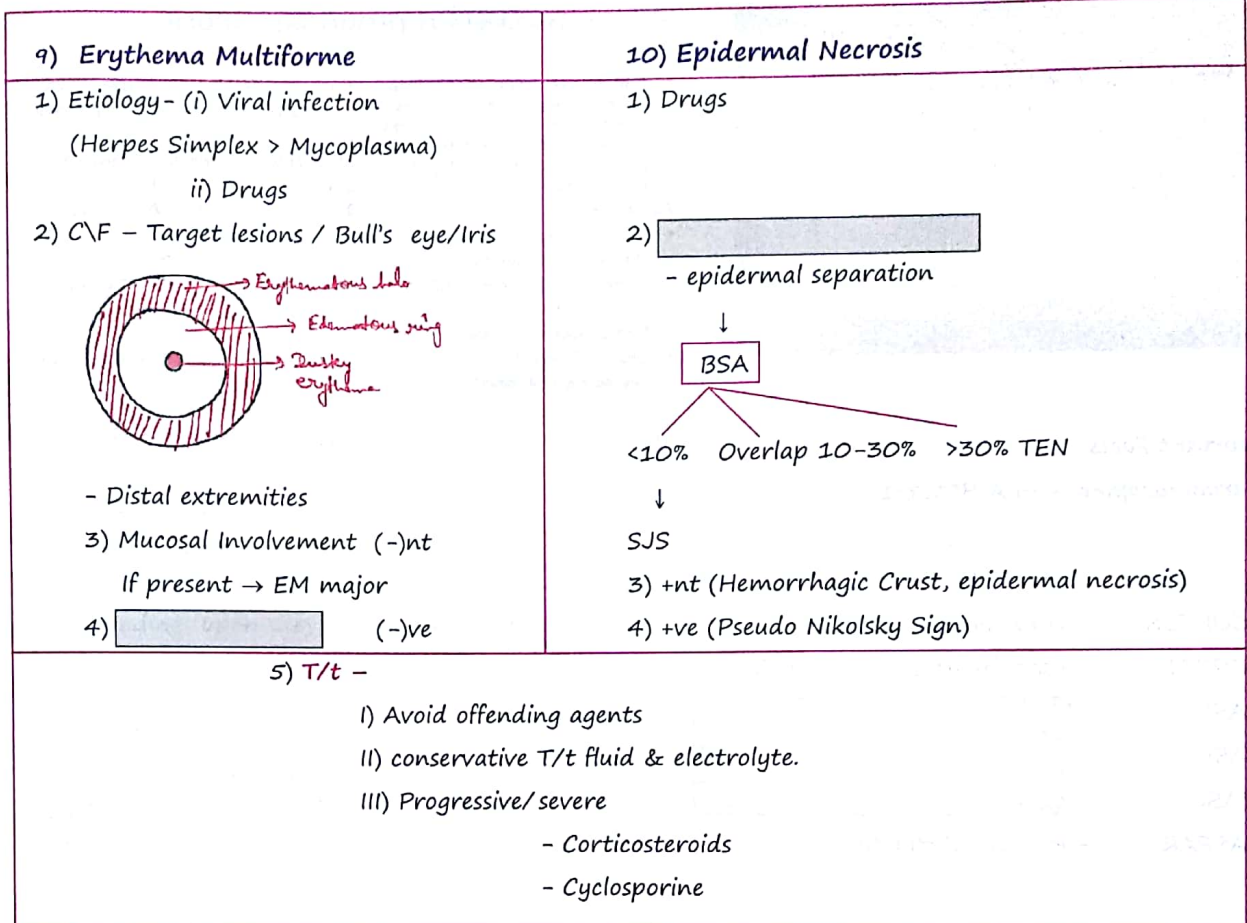 9) Erythema Multiforme
1) Etiology - (i) Viral infection
(Herpes Simplex > Mycoplasma)
ii) Drugs
2) C\F – Target lesions / Bull's eye/Iris
Erythematous halo
Edematous ring
Dusky
erythema
- Distal extremities
3) Mucosal Involvement (-)nt
If present → EM major
4) (-)ve
10) Epidermal Necrosis
1) Drugs
2)
- epidermal separation
↓
BSA
<10% Overlap 10-30% >30% TEN
↓
SJS
3) +nt (Hemorrhagic Crust, epidermal necrosis)
4) +ve (Pseudo Nikolsky Sign)
5) T/t –
I) Avoid offending agents
II) conservative T/t fluid & electrolyte.
III) Progressive/severe
- Corticosteroids
- Cyclosporine